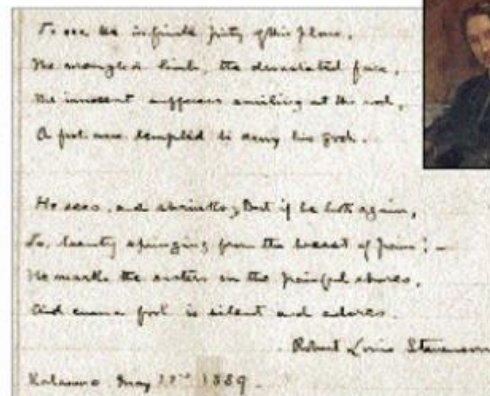 To see the infinite pity of this place,
The mangled limb, the devastated face,
The innocent sufferers smiling at the rod,
A fool were tempted to deny his God.
He sees, and shrinks; But if he look again,
Lo, beauty springing from the breast of pain! —
He marks the sisters on the painful shores,
And even a fool is silent and adores.
Robert Louis Stevenson
Kalawao May 1889.